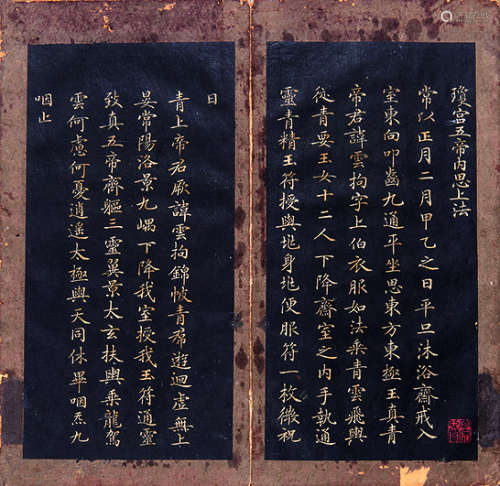 瓊宮五帝內思上法
常以正月二月甲乙之日平旦沐浴齋戒入
室東向叩齒九通平坐思東方東極玉真青
帝君諱雲拘字上伯衣服如法乘青雲飛輿
從青要玉女十二人下降齋室之內手執通
靈青精玉符授與兆身兆便服符一枚微祝
曰
青上帝君厥諱雲拘錦帔青帬遊迴虛無上
晏常陽洛景九嵎下降我室授我玉符通靈
致真五帝齊軀三靈翼景太玄扶輿乘龍駕
雲何慮何憂逍遙太極與天同休畢咽炁九
咽止